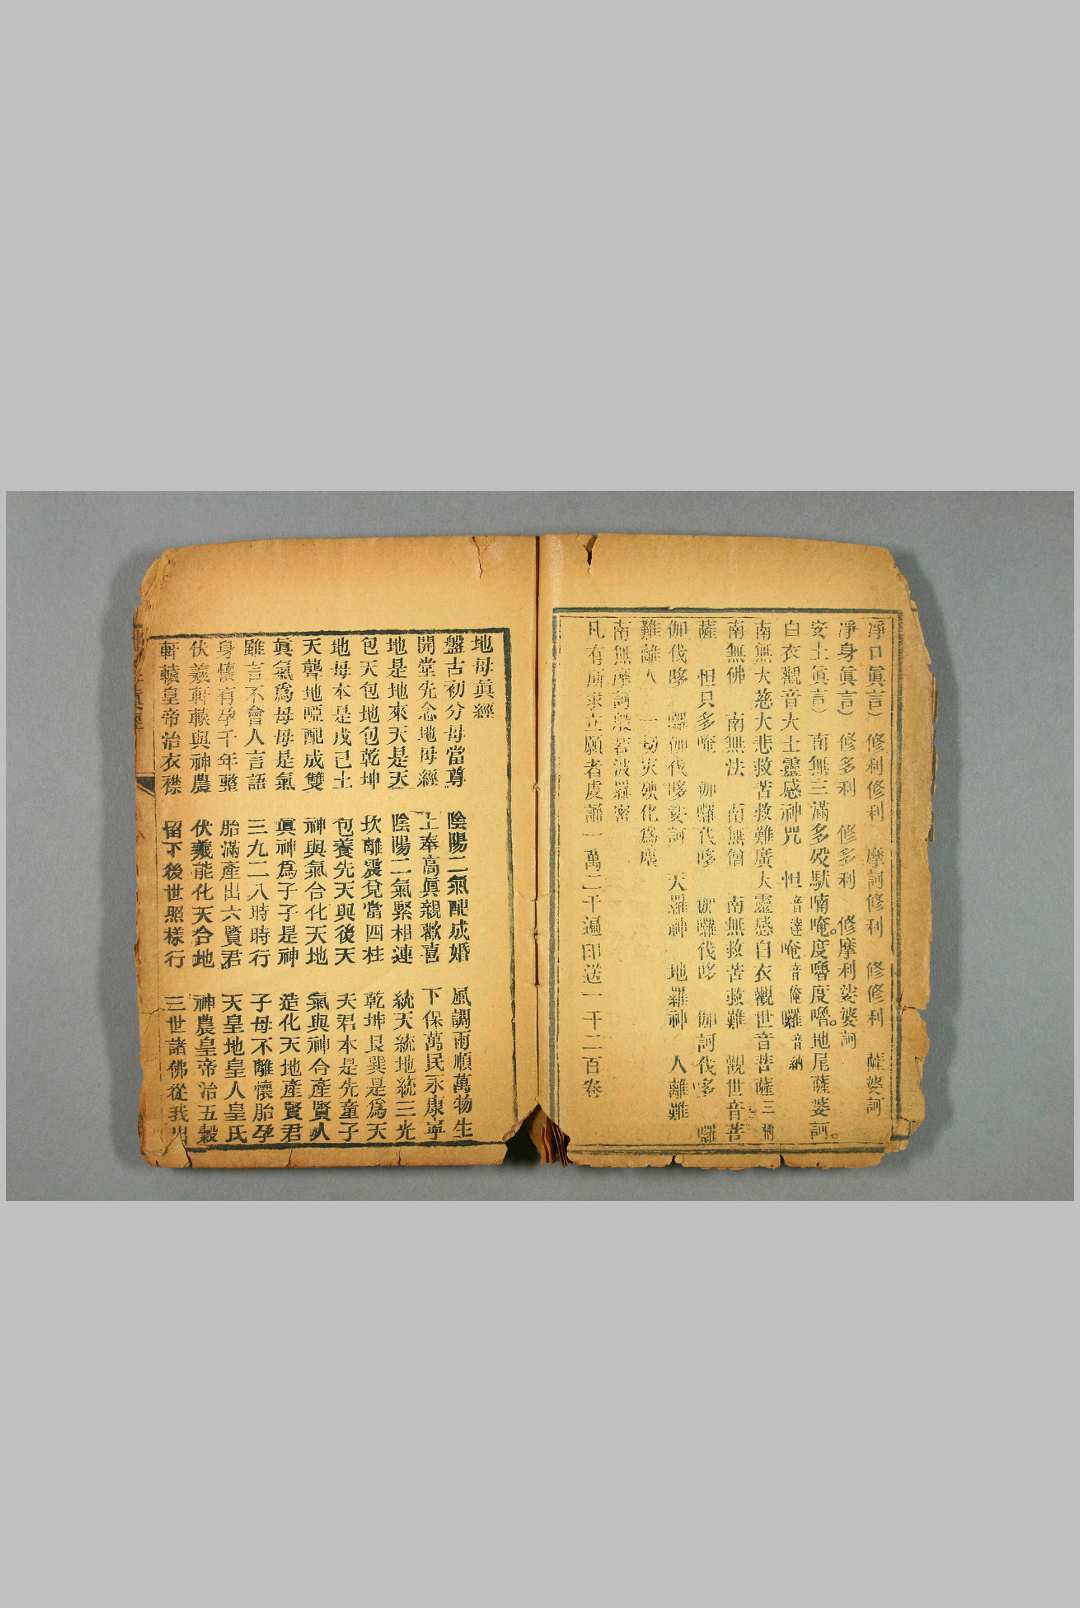 淨口眞言）　修利修利　摩訶修利　修修利　薩婆訶
淨身眞言）　修多利　修多利　修摩利娑婆訶
安土眞言）　南無三滿多㱿馱喃唵。度嚕度嚕。地尾薩婆訶。
白衣觀音大士靈感神咒　怛音達唵音俺囉音納
南無大慈大悲救苦救難廣大靈感白衣觀世音菩薩三稱
南無佛　南無法　南無僧　南無救苦救難　觀世音菩
薩　怛只多唵　伽囉伐哆　伽囉伐哆　伽訶伐哆　囉
伽伐哆　囉伽伐哆娑訶　天羅神　地羅神　人離難
難離人　一切災殃化爲塵
南無摩訶般若波羅密
凡有所求立願者虔誦一萬二千遍印送一千二百卷
地母眞經
盤古初分母當尊　陰陽二氣配成婚　風調雨順萬物生
開堂先念地母經　上奉高眞親歡喜　下保萬民永康寧
地是地來天是天　陰陽二氣緊相連　統天統地統三光
包天包地包乾坤　坎離震兌當四柱　乾坤艮巽是爲天
地母本是戊己土　包養先天與後天　天君本是先童子
天聾地啞配成雙　神與氣合化天地　氣與神合產賢人
眞氣爲母母是氣　眞神爲子子是神　造化天地產賢君
雖言不會人言語　三九二八時時行　子母不離懷胎孕
身懷有孕千年整　胎滿產出六賢君　天皇地皇人皇氏
伏羲軒轅與神農　伏羲能化天合地　神農皇帝治五穀
軒轅皇帝治衣襟　留下後世照樣行　三世諸佛從我出